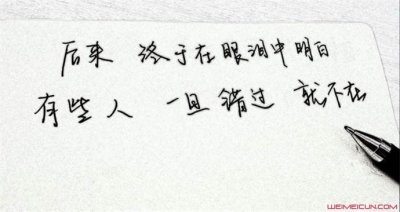 后来 终于在眼泪中明白
有些人 一旦错过 就不在
WEIMEICUN.COM